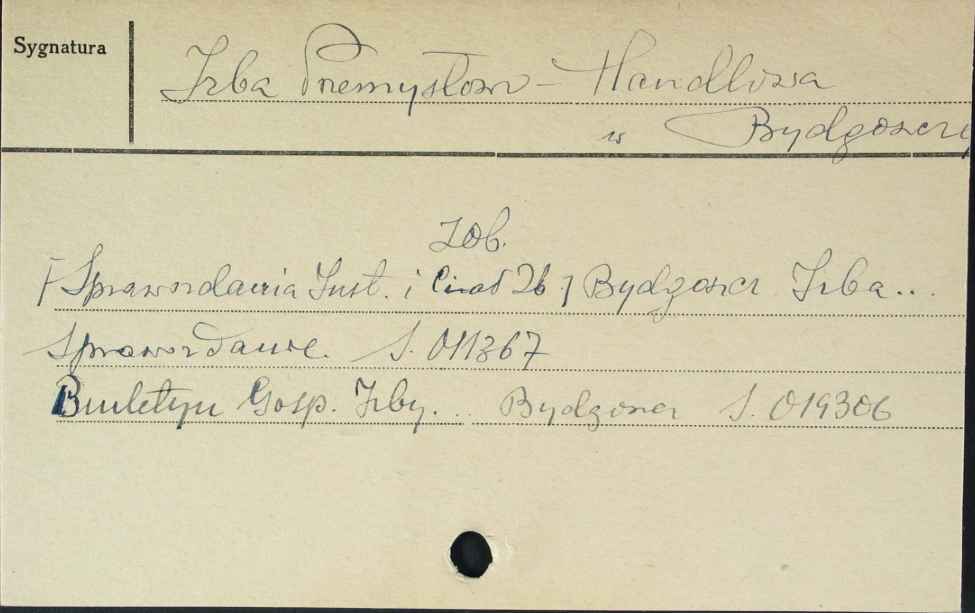 Sygnatura
Izba Przemysłowo - Handlowa
w Bydgoszczy
Zob.
[Sprawozdania Inst. i Zb.] Bydgoszcz Izba...
Sprawozdanie. S. 011367
Biuletyn Gosp. Izby... Bydgoszcz S. 019306